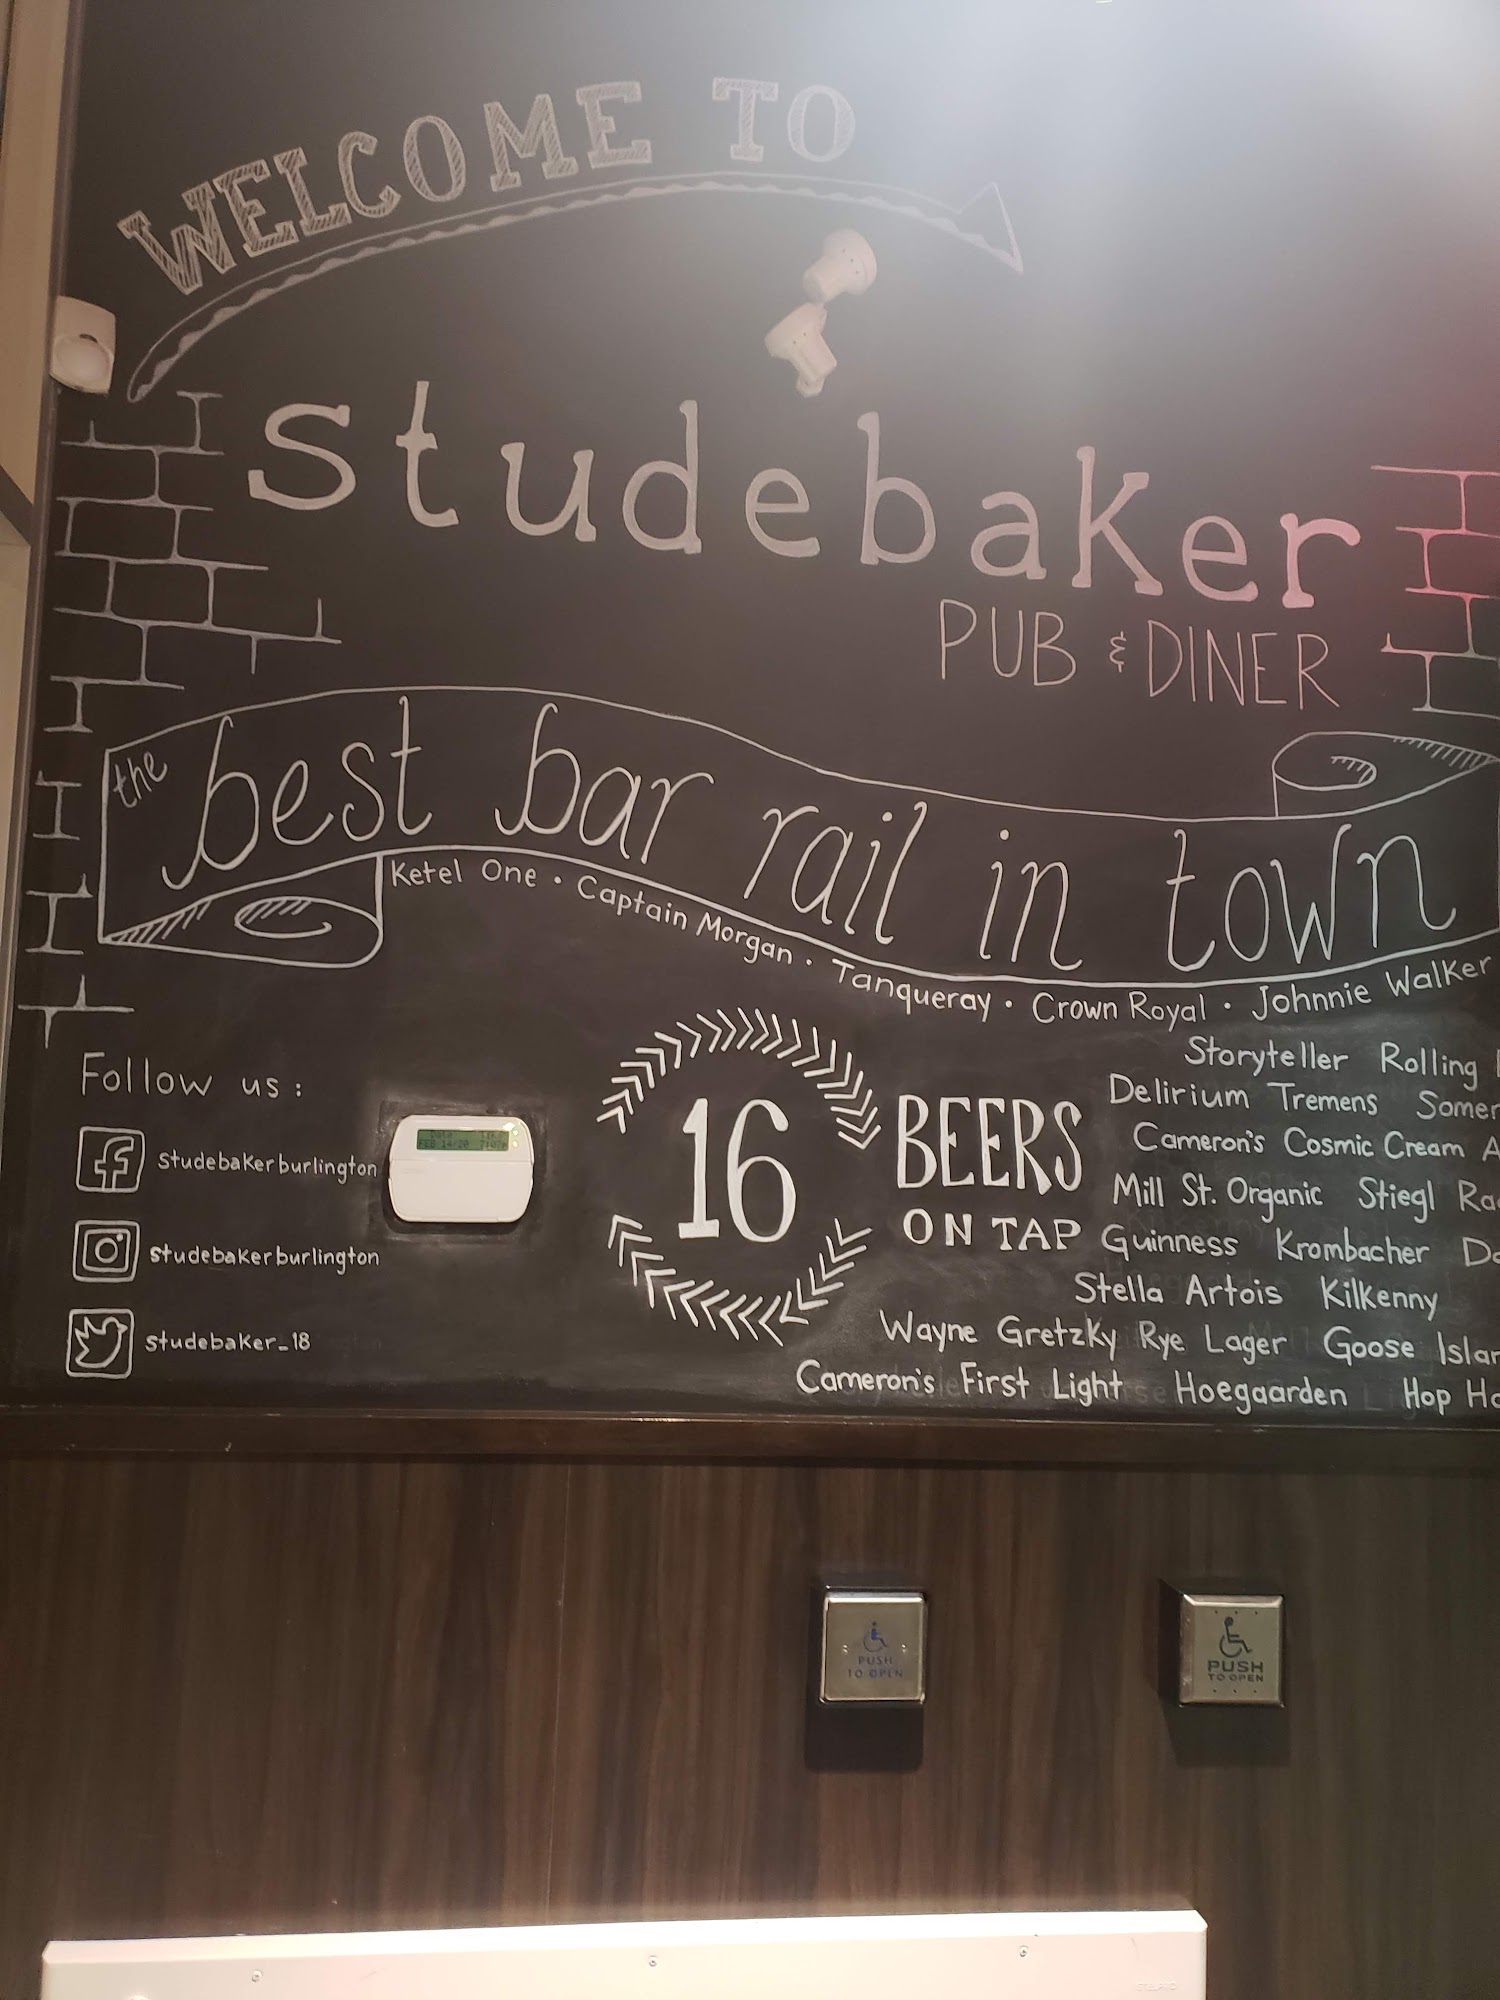 WELCOME TO
studebaker
PUB & DINER
the best bar rail in town
Ketel One • Captain Morgan • Tanqueray • Crown Royal • Johnnie Walker
Follow us:
studebakerburlington
studebakerburlington
studebaker_18
FEB 14/20
16
BEERS
ON TAP
Storyteller Rolling
Delirium Tremens Somer
Cameron's Cosmic Cream A
Mill St. Organic Stiegl Ra
Guinness Krombacher D
Stella Artois Kilkenny
Wayne Gretzky Rye Lager Goose Islan
Cameron's First Light Hoegaarden Hop Ho
PUSH
TO OPEN
PUSH
TO OPEN
STELPRO